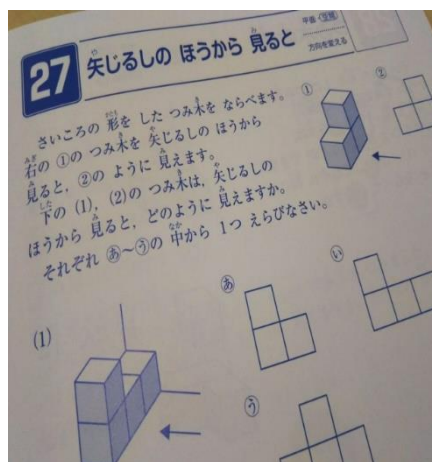 27 矢じるしの ほうから 見ると
平面・空間
方向を変える
さいころの 形を した つみ木を ならべます。
右の ①の つみ木を 矢じるしの ほうから
見ると、②の ように 見えます。
下の (1), (2)の つみ木は、矢じるしの
ほうから 見ると、どのように 見えますか。
それぞれ あ〜うの 中から 1つ えらびなさい。
①
②
(1)
あ
い
う